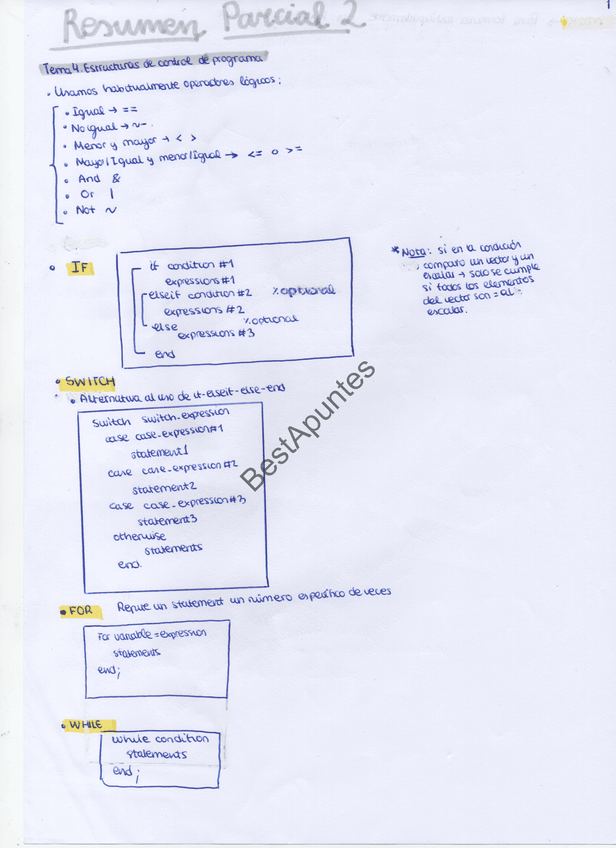 1
Resumen Parcial 2
Tema 4. Estructuras de control de programa
• Usamos habitualmente operadores lógicos:
• Igual → ==
• No igual → ~-.
• Menor y mayor → < >
• Mayor/Igual y menor/Igual → <= o >=
• And &
• Or |
• Not ~
• IF
if condition #1
expressions #1
elseif condition #2 %optional
expressions #2
else %optional
expressions #3
end
* Nota: si en la condición
comparo un vector y un
escalar → solo se cumple
si todos los elementos
del vector son = al
escalar.
• SWITCH
• Alternativa al uso de if-elseif-else-end
switch switch-expression
case case-expression#1
statement1
case case-expression#2
statement2
case case-expression#3
statement3
otherwise
statements
end.
• FOR Repite un statement un número específico de veces
For variable = expression
statements
end;
• WHILE
while condition
statements
end;
BestApuntes